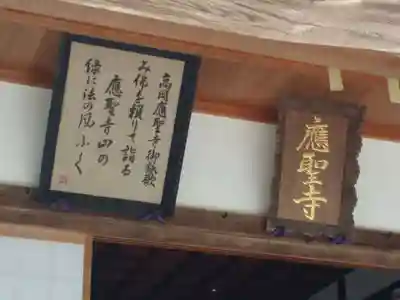 高岡應聖寺御詠歌
み佛を頼りて詣る
應聖寺山の
緑に法の風ふく
應聖寺